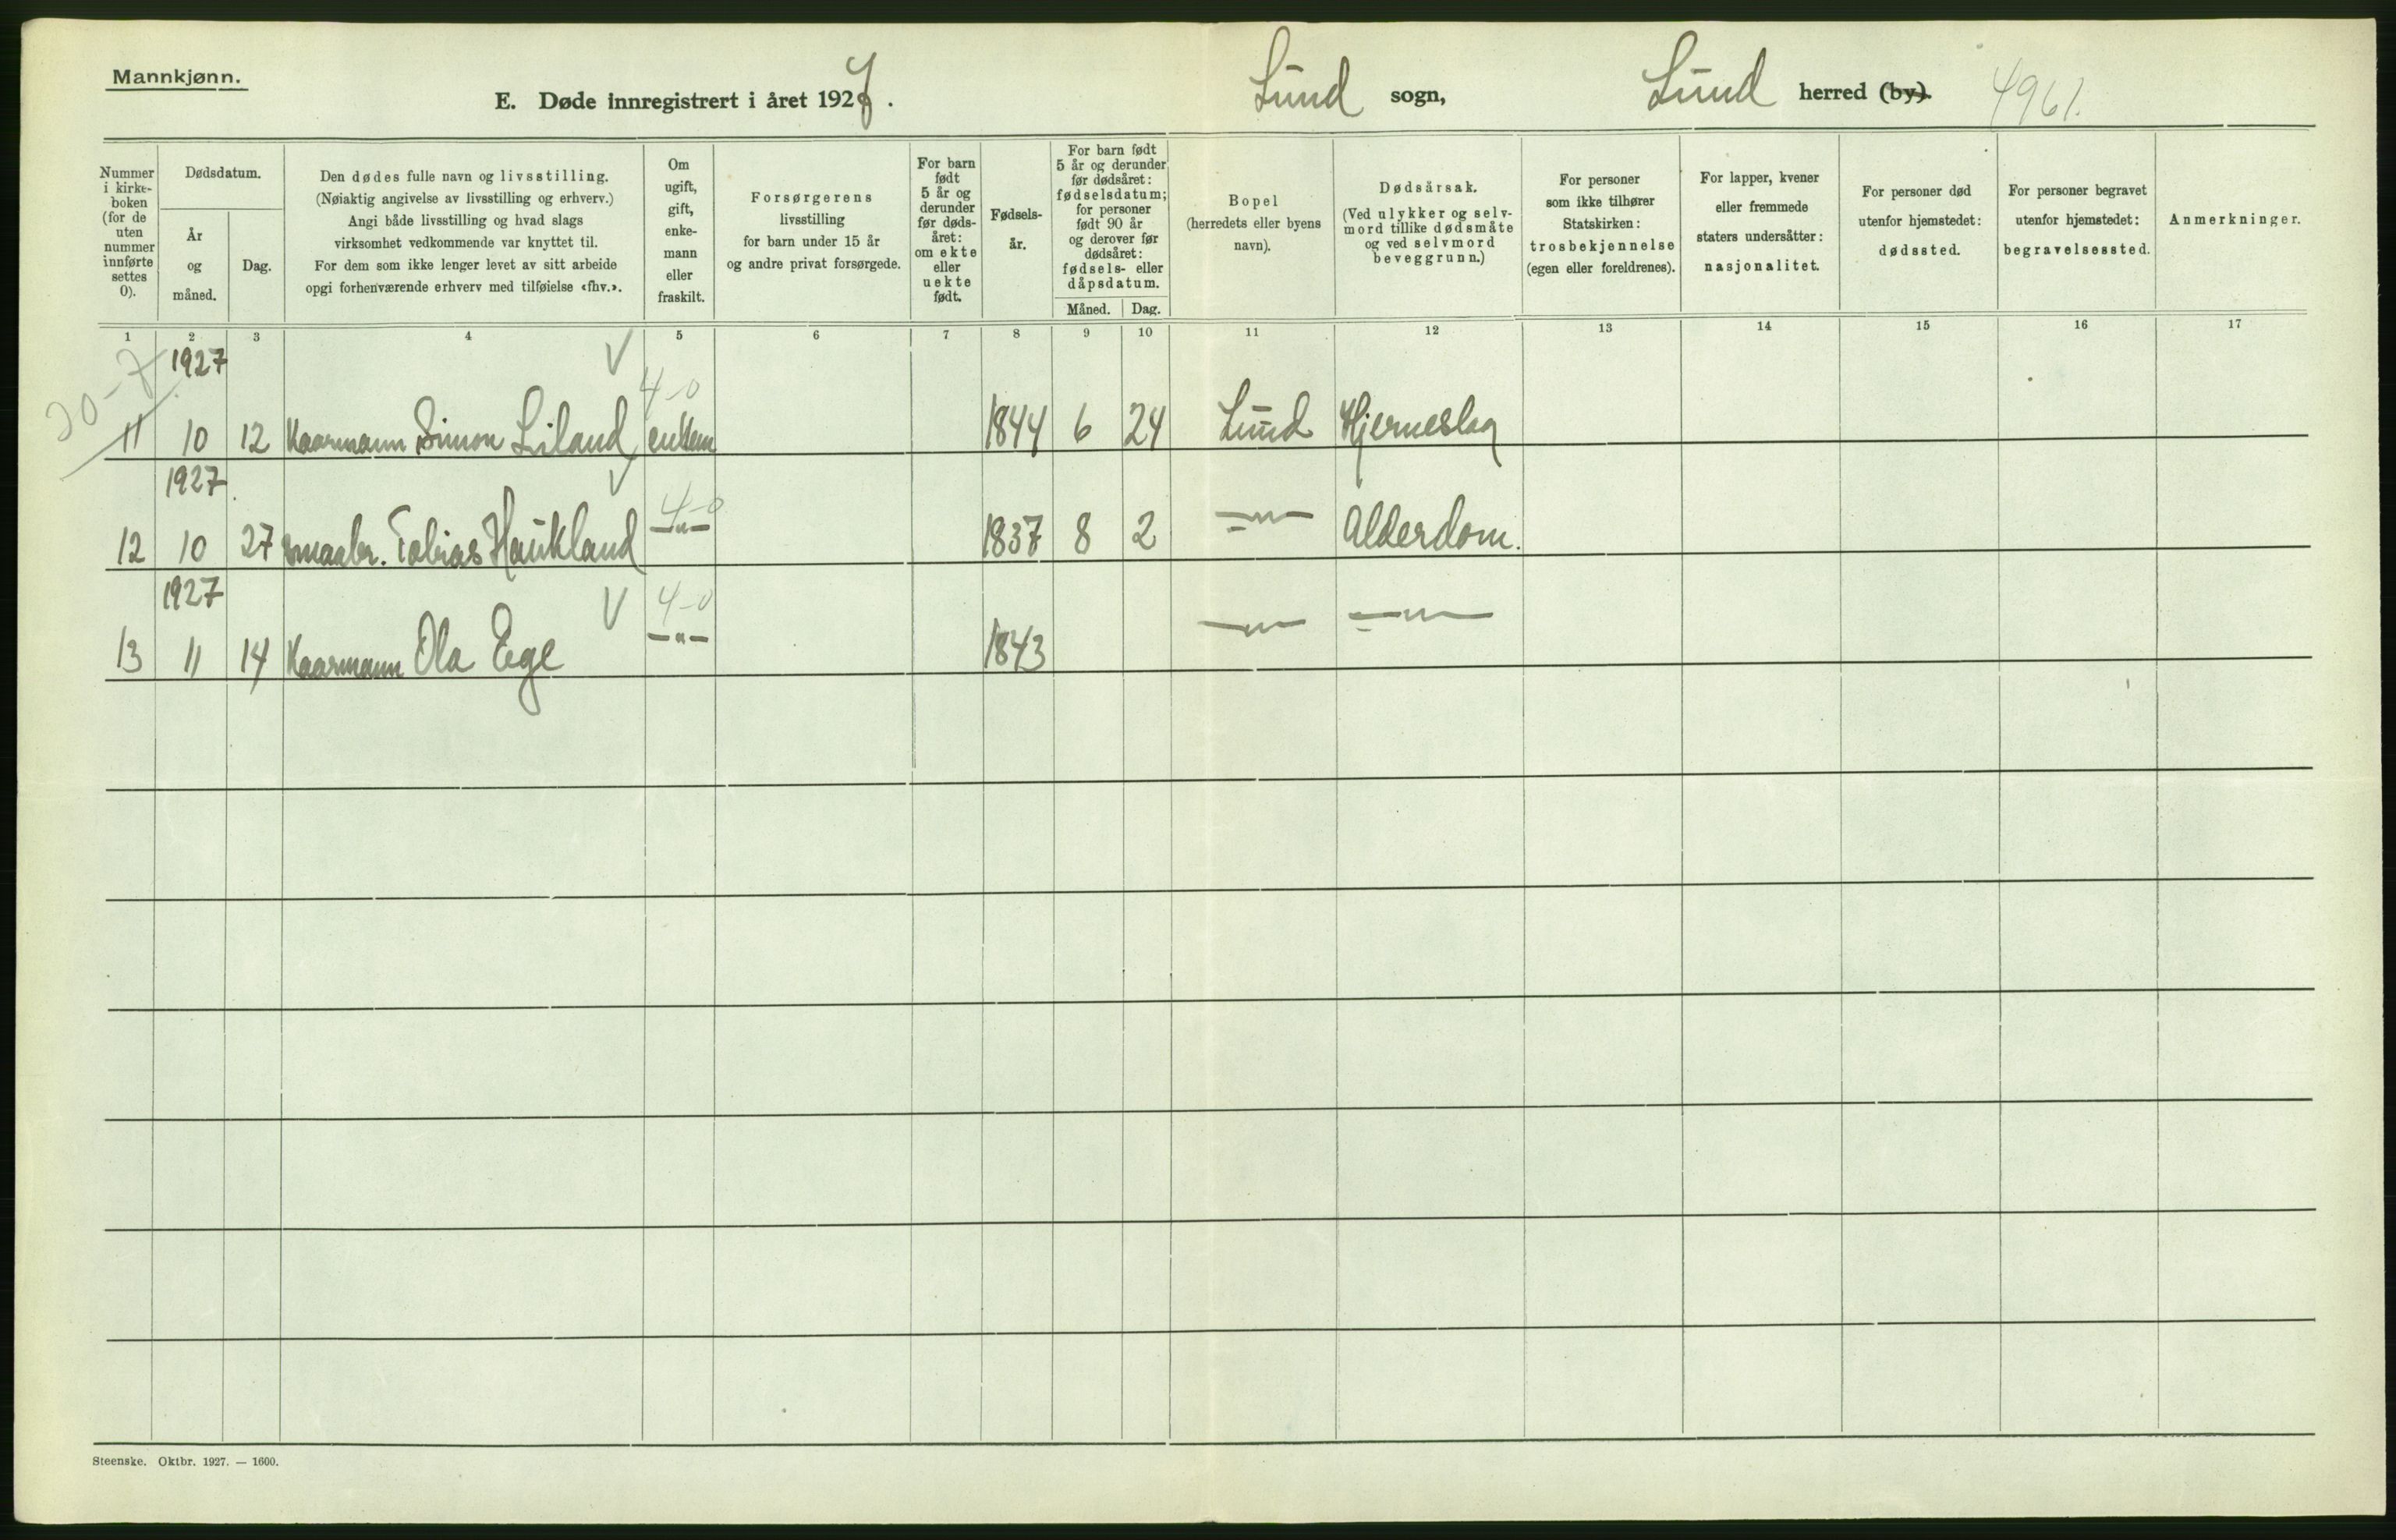 Mannkjønn.
E. Døde innregistrert i året 1927.
Lund sogn,
Lund herred (by).
4961.
Nummer
i kirke-
boken
(for de
uten
nummer
innførte
settes
0).
Dødsdatum.
År
og
måned.
Dag.
Den dødes fulle navn og livsstilling.
(Nøiaktig angivelse av livsstilling og erhverv.)
Angi både livsstilling og hvad slags
virksomhet vedkommende var knyttet til.
For dem som ikke lenger levet av sitt arbeide
opgi forhenværende erhverv med tilføielse «fhv.».
Om
ugift,
gift,
enke-
mann
eller
fraskilt.
Forsørgerens
livsstilling
for barn under 15 år
og andre privat forsørgede.
For barn
født
5 år og
derunder
før døds-
året:
om ekte
eller
uekte
født.
Fødsels-
år.
For barn født
5 år og derunder
før dødsåret:
fødselsdatum;
for personer
født 90 år
og derover før
dødsåret:
fødsels- eller
dåpsdatum.
Måned. Dag.
Bopel
(herredets eller byens
navn).
Dødsårsak.
(Ved ulykker og selv-
mord tillike dødsmåte
og ved selvmord
beveggrunn.)
For personer
som ikke tilhører
Statskirken:
trosbekjennelse
(egen eller foreldrenes).
For lapper, kvener
eller fremmede
staters undersåtter:
nasjonalitet.
For personer død
utenfor hjemstedet:
dødssted.
For personer begravet
utenfor hjemstedet:
begravelsessted.
Anmerkninger.
1 2 3 4 5 6 7 8 9 10 11 12 13 14 15 16 17
30-7
1927
V
4-0
11 10 12 Kaarmann Simon Liland enkem 1844 6 24 Lund Hjerneslag
1927
V
4-0
12 10 27 Smaabr. Tobias Haukland —"— 1837 8 2 —"— Alderdom.
1927
V
4-0
13 11 14 Kaarmann Ola Ege —"— 1843 —"— —"—
Steenske. Oktbr. 1927. — 1600.